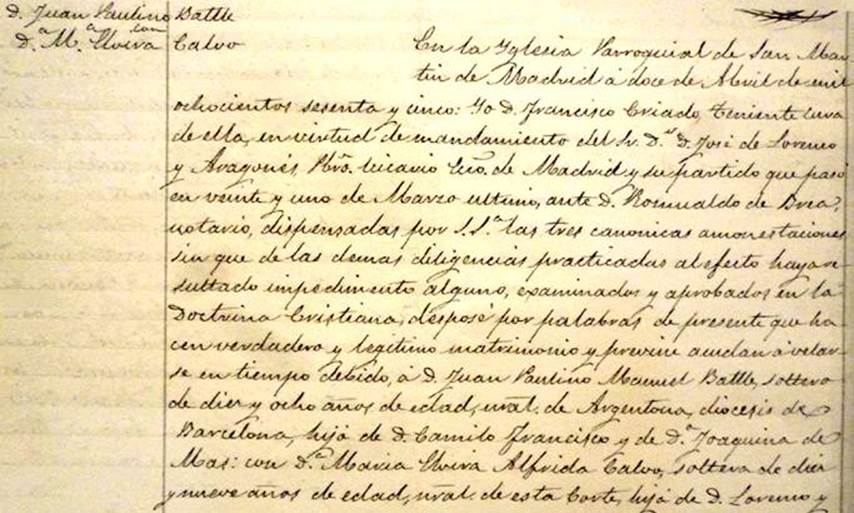 D. Juan Paulino Batlle
con
D.ª M.ª Elvira Calvo
En la Yglesia Parroquial de San Mar-
tin de Madrid á doce de Abril de mil
ochocientos sesenta y cinco: Yo D. Francisco Criado, Teniente Cura
de ella, en virtud de mandamiento del Sr. D.r D. José de Lorenzo
y Aragonés, Pbro. Vicario Ecco. de Madrid y su partido que pasó
en veinte y uno de Marzo ultimo, ante D. Romualdo de Brea,
notario, dispensadas por S.S.ª las tres canonicas amonestaciones
sin que de las demas diligencias practicadas al efecto haya re-
sultado impedimento alguno, examinados y aprobados en la
Doctrina Cristiana, desposé por palabras de presente que ha-
cen verdadero y legitimo matrimonio y previne acudan á velar-
se en tiempo debido, á D. Juan Paulino Manuel Batlle, soltero
de diez y ocho años de edad, nat. de Argentona, diocesis de
Barcelona, hijo de D. Camilo Francisco y de D.ª Joaquina de
Mas: con D.ª Maria Elvira Alfrida Calvo, soltera de diez
y nueve años de edad, nat. de esta Corte, hija de D. Lorenzo y